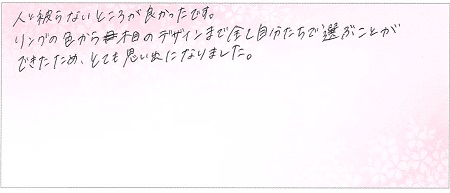 人と被らないところが良かったです。
リングの色から木目のデザインまで全て自分たちで選ぶことが
できたため、とても思い出になりました。